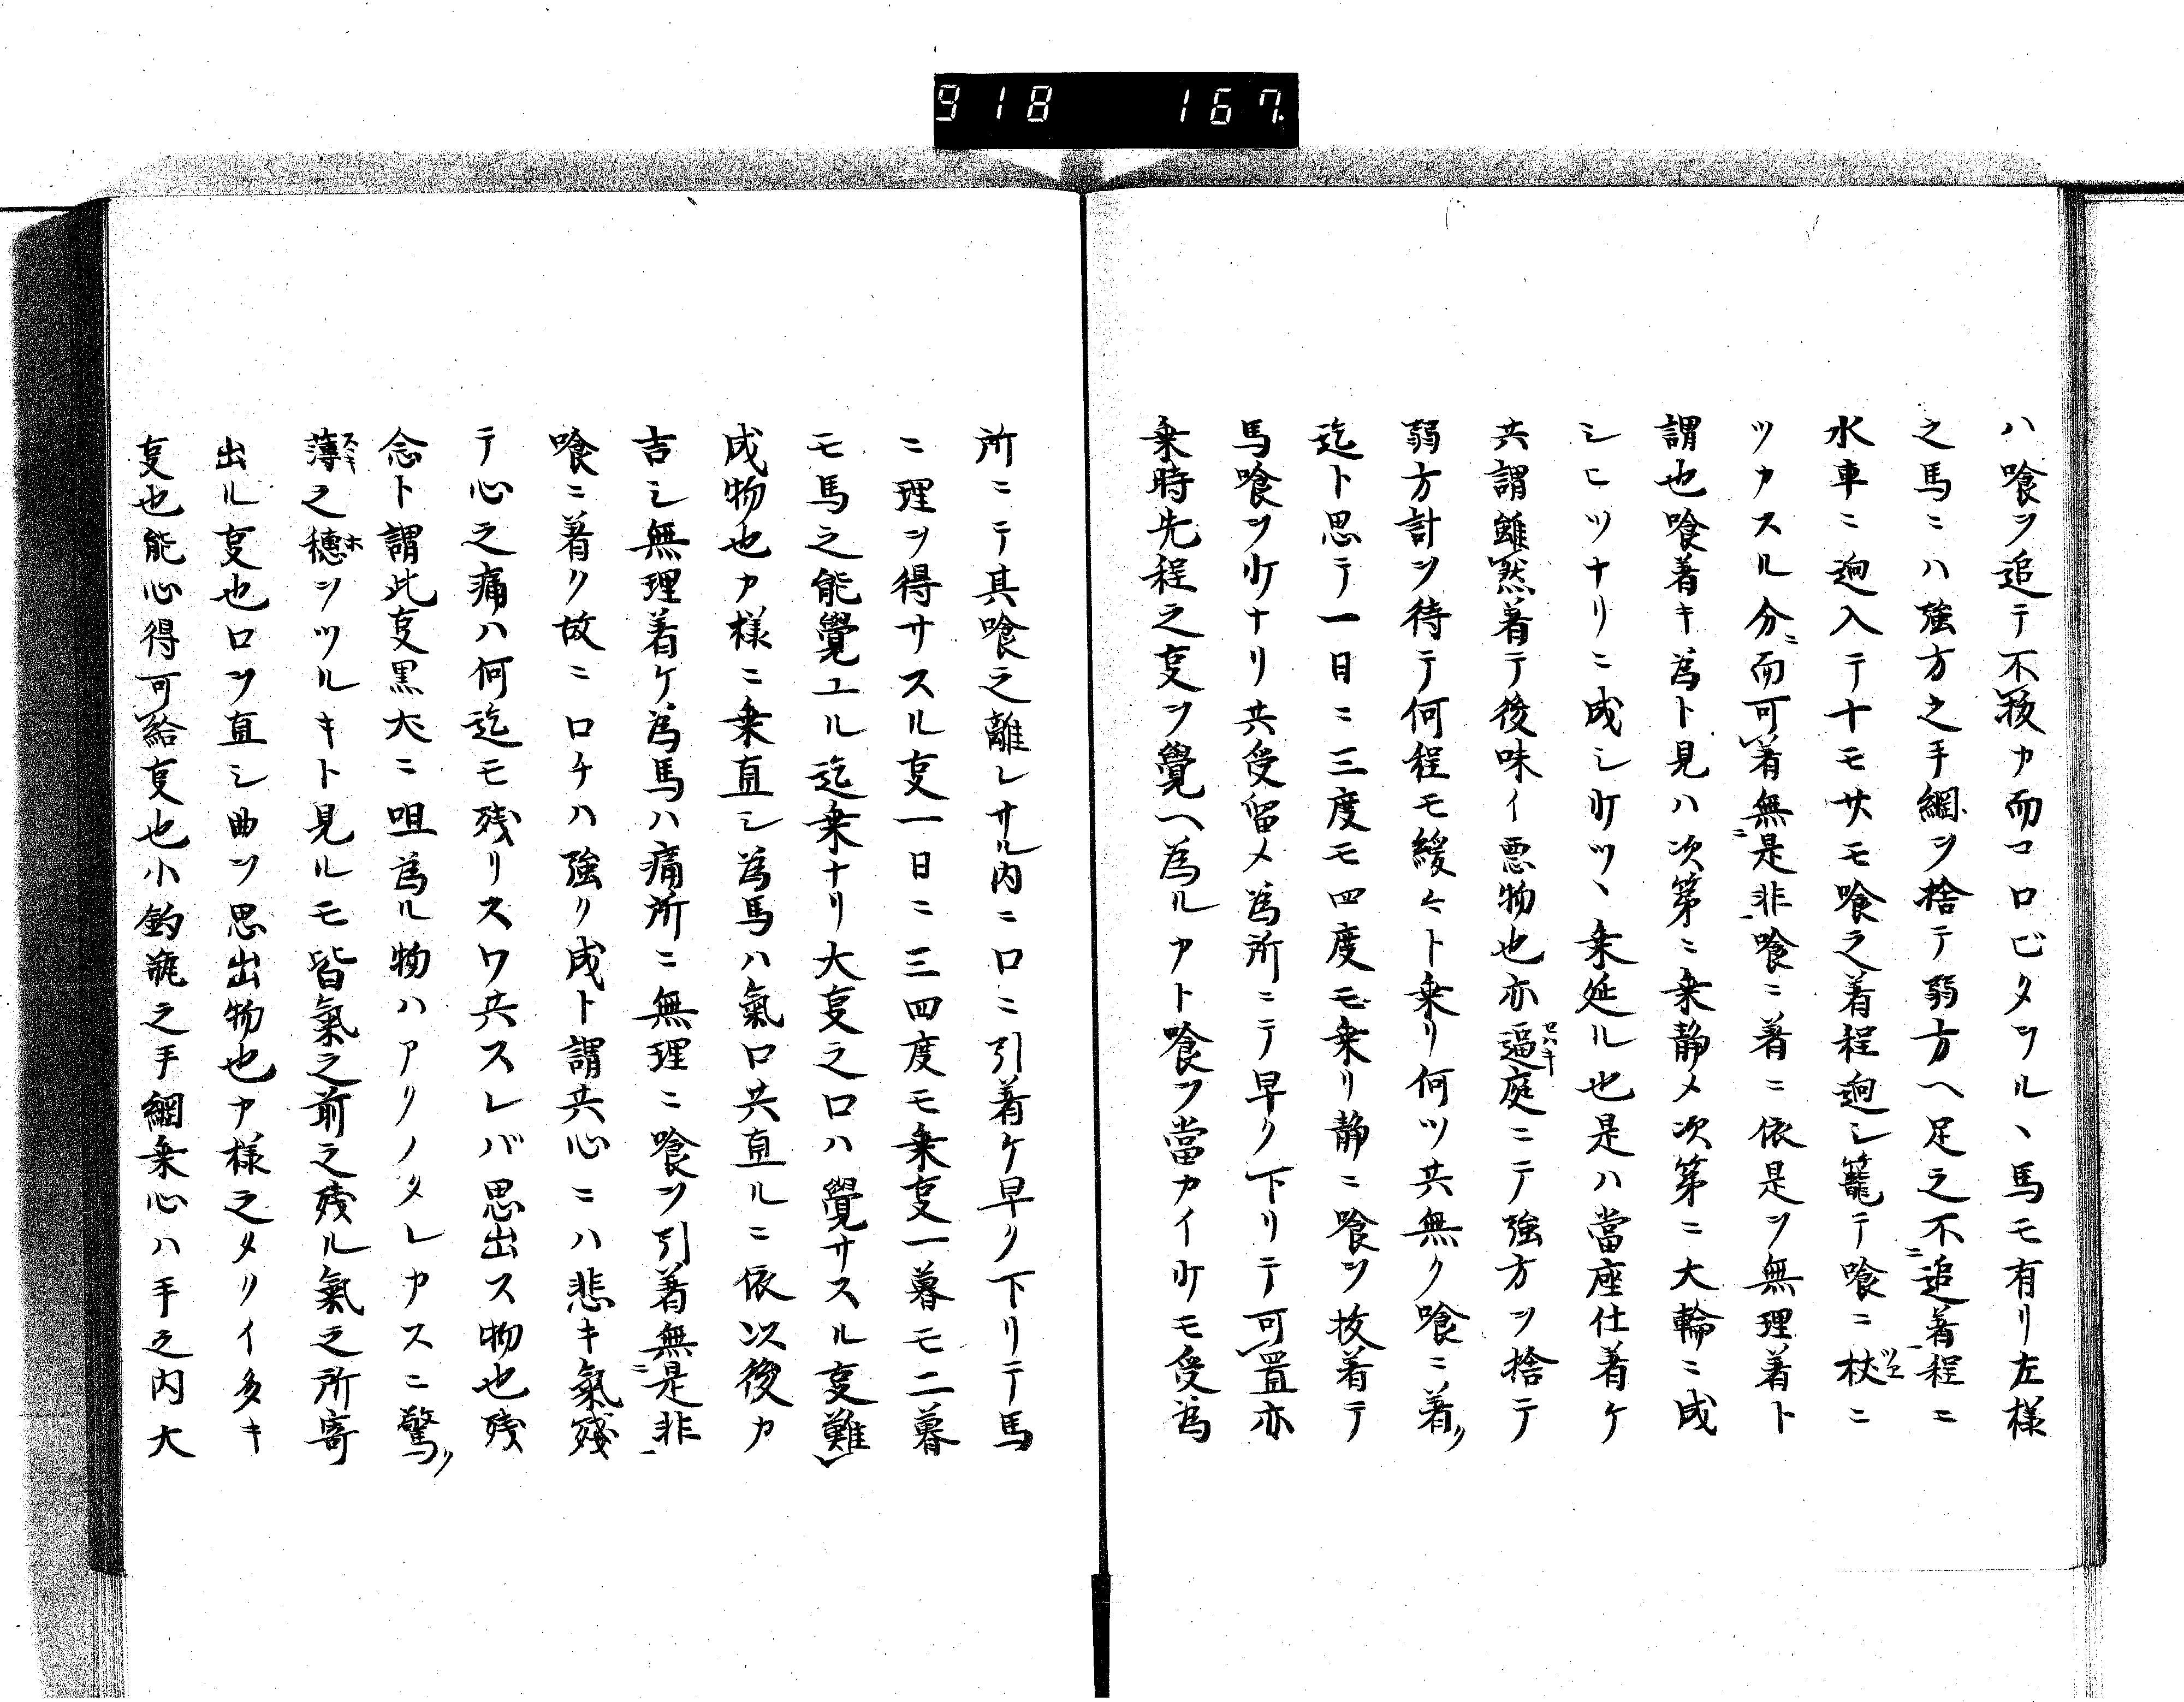 918 167.
ハ喰ヲ追テ不扱カ而コロビタツル丶馬モ有リ左様
之馬ニハ強方之手綱ヲ捨テ弱方ヘ足之不ニ追着一程ニ
水車ニ廻入テ十モサモ喰之着程廻シ籠テ喰ニ杖ツエニ
ツカスル分ニ而可着無ニ是非一喰ニ着ニ依是ヲ無理着ト
謂也喰着キ為ト見ハ次第ニ乗静メ次第ニ大輪ニ成
シヒツナリニ成シ少ツ丶乗延ル也是ハ當座仕着ケ
共謂雖然着テ後味イ悪物也亦逼セハキ庭ニテ強方ヲ捨テ
弱方計ヲ待テ何程モ緩々ト乗リ何ツ共無ク喰ニ着ク
迄ト思テ一日ニ三度モ四度モ乗リ静ニ喰ヲ扱着テ
馬喰ヲ少ナリ共受留メ為所ニテ早ク下リテ可置亦
乗時先程之叓ヲ覺ヘ為ルカト喰ヲ當カイ少モ受為
所ニテ其喰之離レサル内ニ口ニ引着ケ早ク下リテ馬
ニ理ヲ得サスル叓一日ニ三四度モ乗叓一暮モ二暮
モ馬之能覺ユル迄乗ナリ大叓之口ハ覺サスル叓難
成物也カ様ニ乗直シ為馬ハ氣口共直ルニ依次後カ
吉シ無理着ケ為馬ハ痛所ニ無理ニ喰ヲ引着無ニ是非一
喰ニ着ク故ニ口チハ強ク成ト謂共心ニハ悲キ氣残
テ心之痛ハ何迄モ残リスワ共スレバ思出ス物也残
念ト謂此叓黒犬ニ咀為ル物ハアクノタレカスニ驚ク
薄スヽキ之穂ホヲツルキト見ルモ皆氣之前之残ル氣之所寄
出ル叓也口ヲ直シ曲ヲ思出物也カ様之タリイ多キ
叓也能心得可給叓也小釣瓶之手綱乗心ハ手之内大